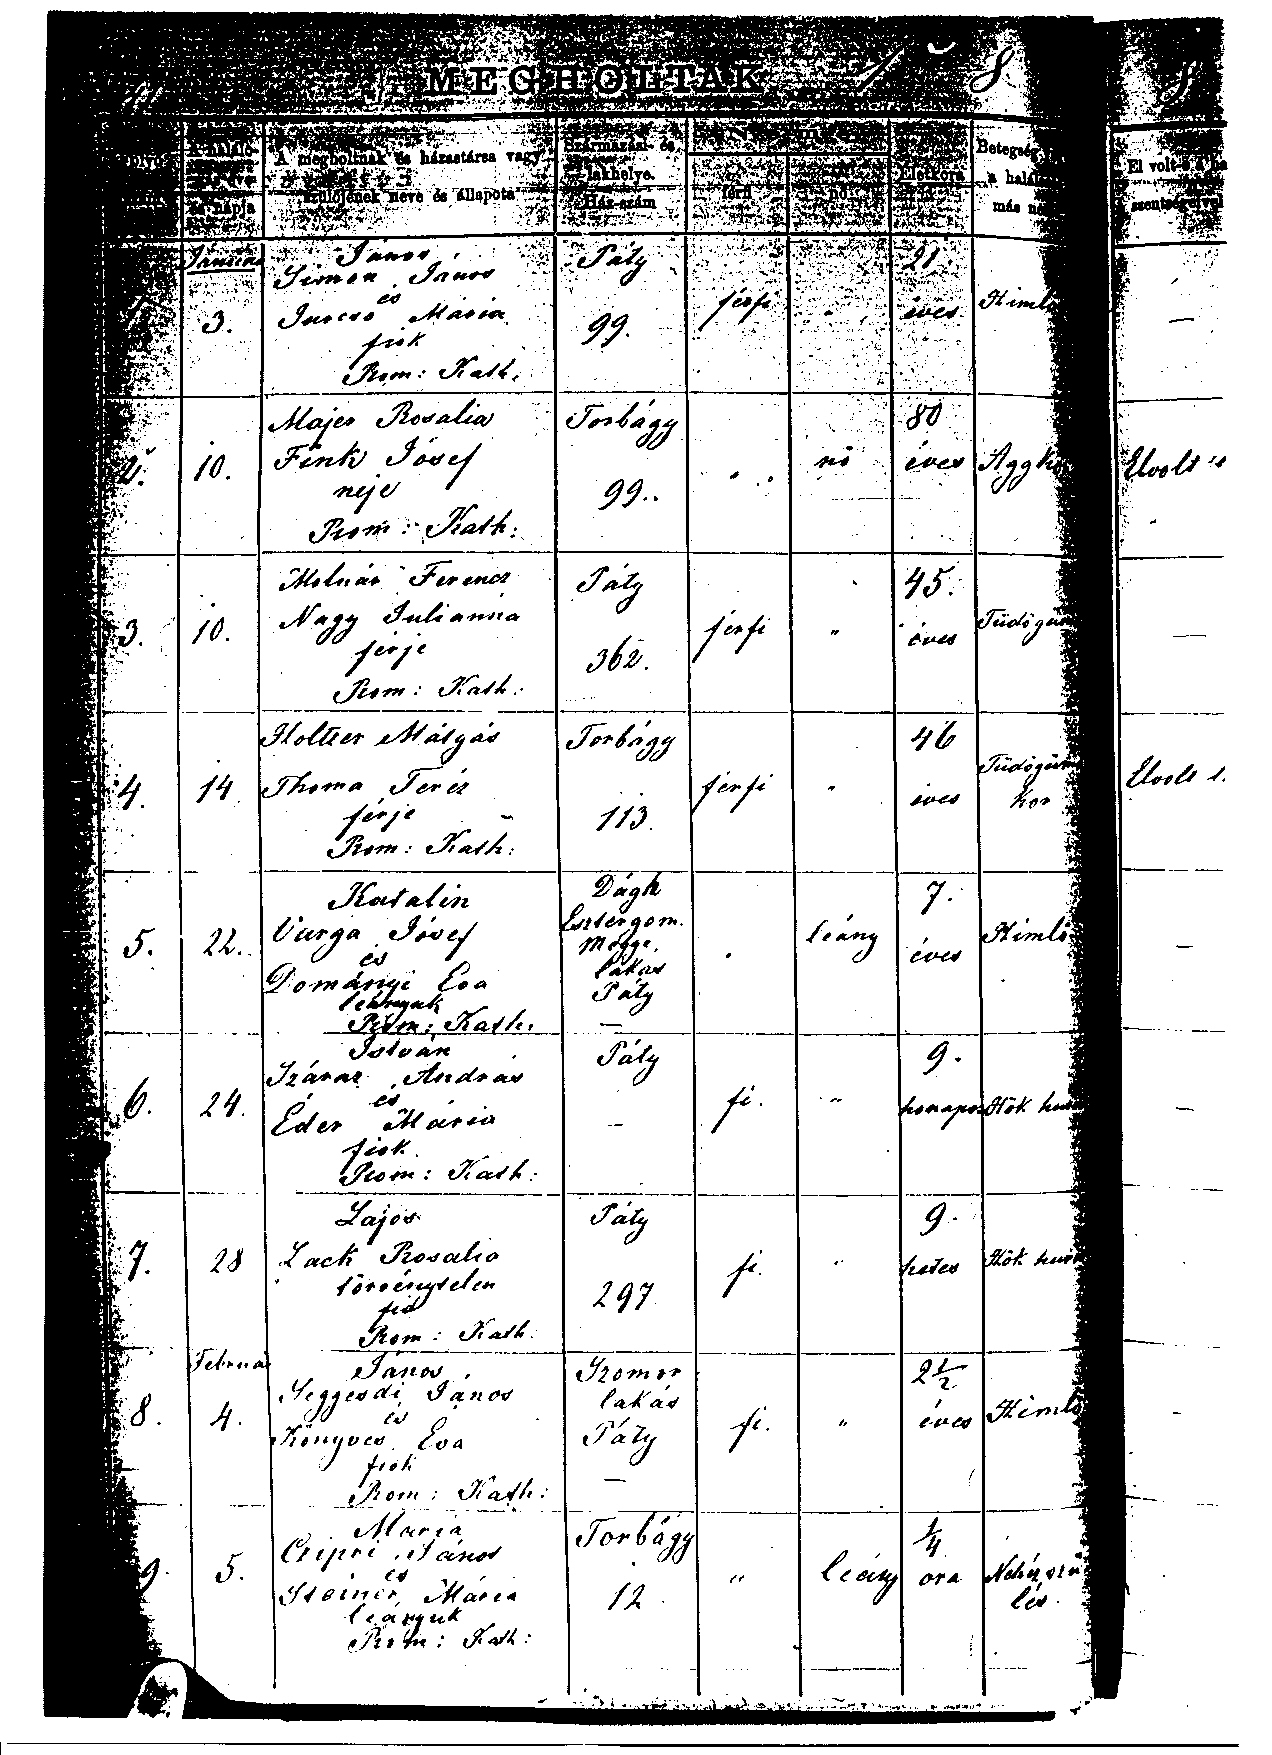 MEGHOLTAK 1 8
A megholtnak és házastársa vagy
szülőjének neve és állapota
Származási- és
lakhelye.
Ház-szám
férfi
nő
Életkora
Betegség
a halál
más ne
El volt-e a ha
szentségeivel
Január
3.
János
Simon János
és
Mária
fiok
Rom: Kath.
Páty
99.
férfi
21.
éves
Himlő
—
2.
10.
Majer Rosalia
Fink Jósef
neje
Rom: Kath:
Torbágy
99.
nő
80
éves
Aggk
Elvolt
3.
10.
Molnár Ferencz
Nagy Julianna
férje
Rom: Kath:
Páty
362.
férfi
"
45.
éves
Tüdőgüm
—
4.
14
Mátyás
Thoma Teréz
férje
Rom: Kath:
Torbágy
113.
férfi
"
46
éves
Tüdőgüm
kor
Elvolt
5.
22.
Katalin
Varga Jósef
és
Dományi Eva
leányuk
Rom: Kath.
Dágh
Esztergom.
Megye.
lakás
Páty
—
leány
7.
éves
Himlő
—
6.
24.
István
Száraz András
és
Éder Mária
fiok.
Rom: Kath:
Páty
—
fi.
"
9.
honapos
Hök hur
—
7.
28
Lajos
Lack Rosalia
törvénytelen
fia
Rom: Kath.
Páty
297
fi.
"
9.
hetes
Hök hur
Februa
8.
4.
János
Seggesdi János
és
Könyves Eva
fiok
Rom: Kath:
Szomor
lakás
Páty
—
fi.
"
2½
éves
Himlő
9
5.
Maria
Czipri János
és
Steiner Mária
leányuk
Rom: Kath:
Torbágy
12
"
leány
¼
ora
Nehéz szü
lés.